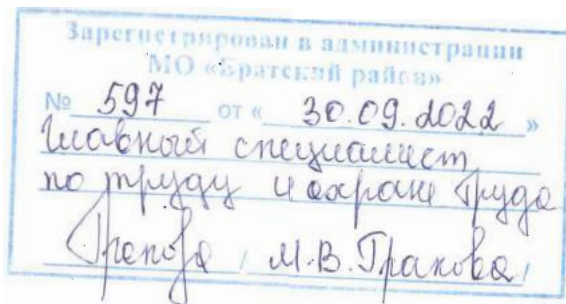 Зарегистрирован в администрации
МО «Братский район»
№ 597 от « 30.09.2022 »
Главный специалист
по труду и охране труда
/ М.В. Гракова /